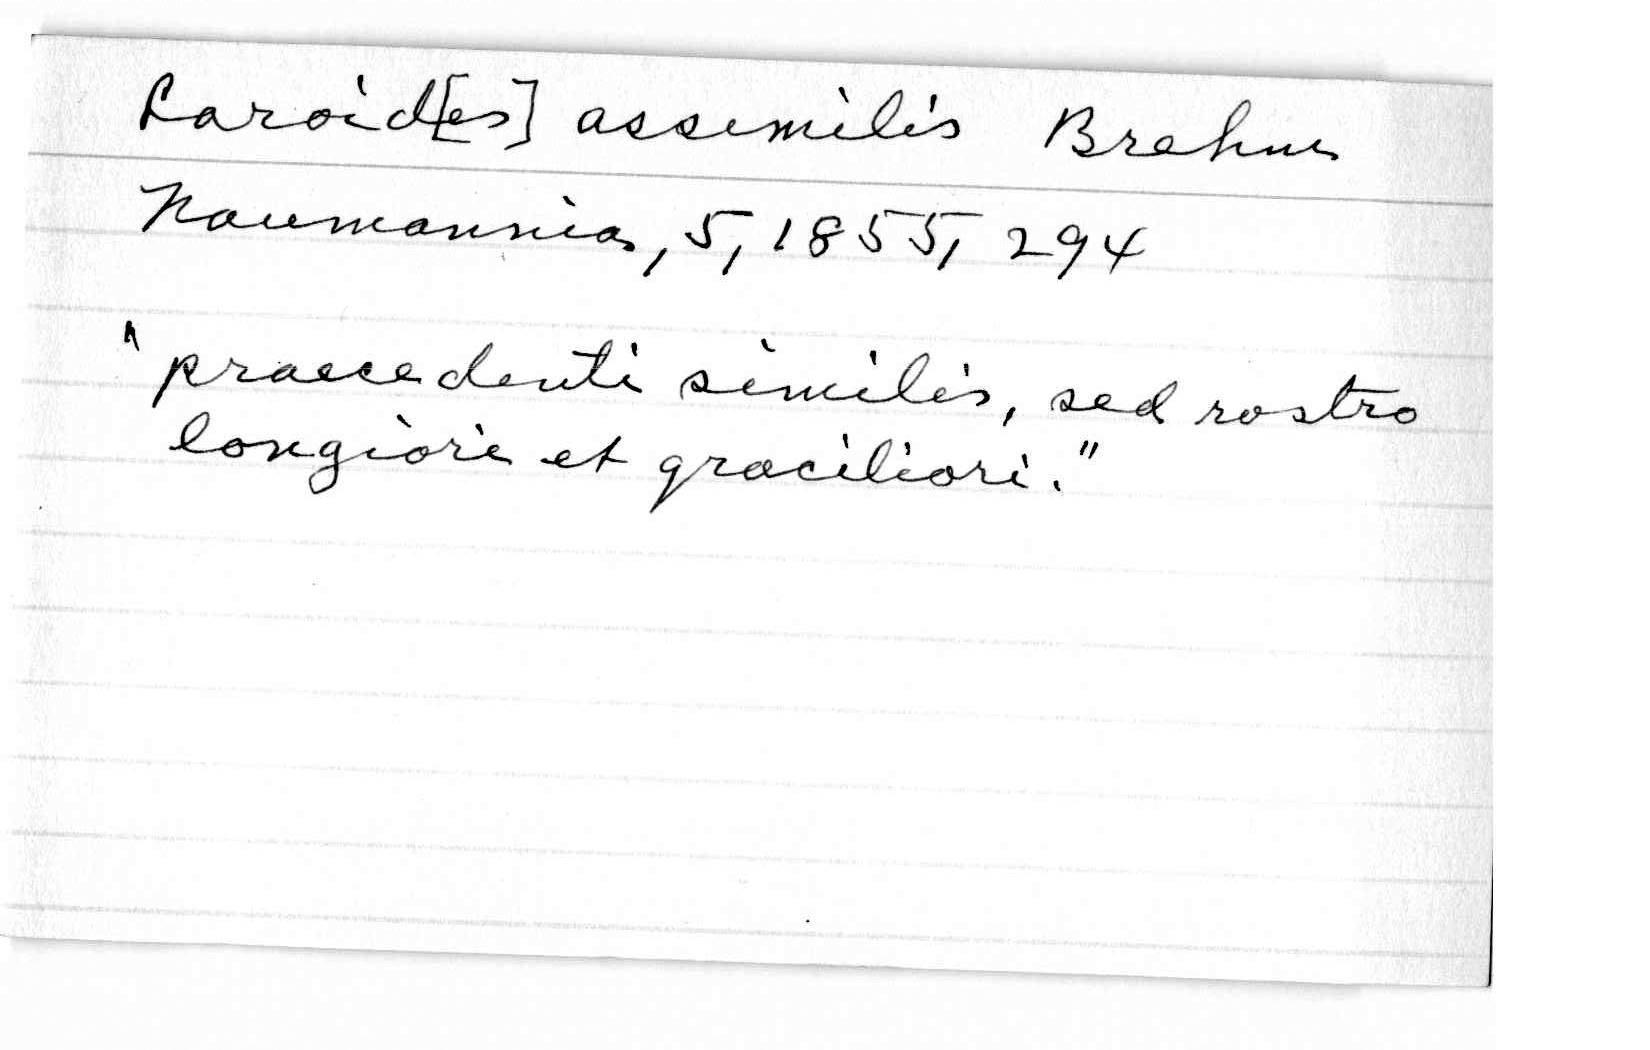 Laroid[es] assimilis Brehm
Naumannia, 5, 1855, 294
"praecedenti similis, sed rostro
longiori et graciliori."